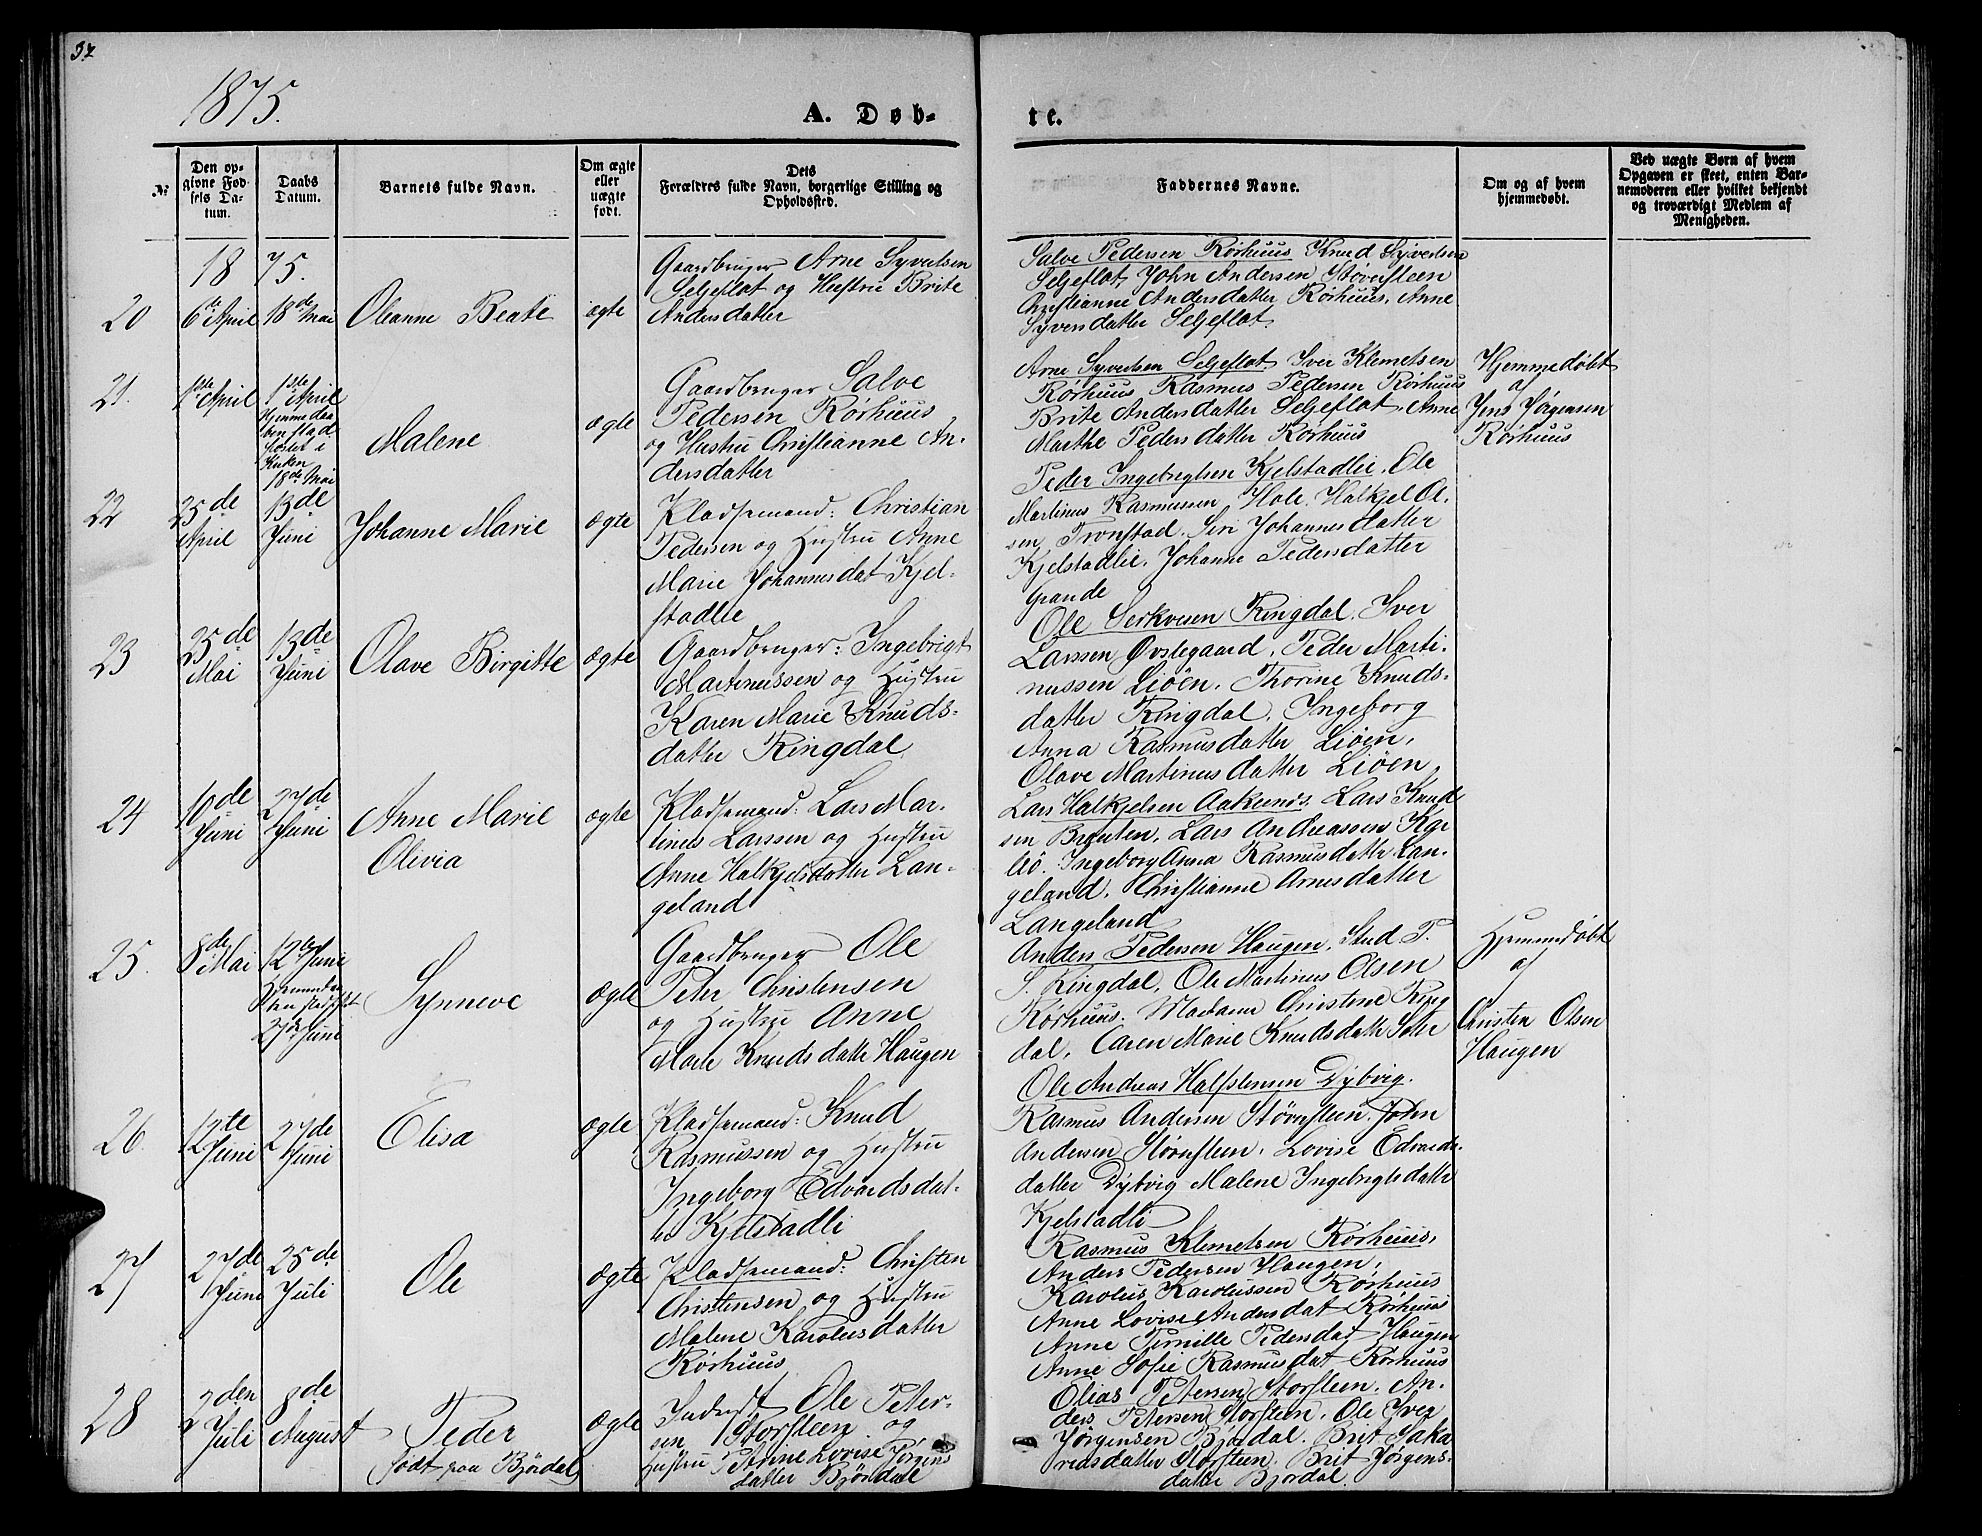 37
1875.
A. Døb-
te.
№
Den op-
givne Fød-
sels Da-
tum.
Daabs
Datum.
Barnets fulde Navn.
Om ægte
eller
uægte
født.
Dets
Forældres fulde Navn, borgerlige Stilling og
Opholdssted.
Faddernes Navne.
Om og af hvem
hjemmedøbt.
Ved uægte Børn af hvem
Opgaven er skeet, enten Bar-
nemoderen eller hvilket bekjendt
og troværdigt Medlem af
Menigheden.
1875.
20
6de April
18de Mai
Oleanne Beate
ægte
Gaardbruger Arne Syvertsen
Seljeflot og Hustru Brite
Andersdatter
Salve Pedersen Rørhuus Knud Syvertsen
Seljeflot, John Andersen Størensteen
Christianne Andersdatter Rørhuus, Anne
Syversdatter Seljeflot.
21.
1ste April
1ste April
Hjemmedaa
ben stad
i
Kirken
18de Mai
Malene
ægte
Gaardbruger Salve
Pedersen Rørhuus
og Hustru Christianne An-
dersdatter
Arne Syvertsen Seljeflot Iver Klemetsen
Rørhuus Rasmus Pedersen Rørhuus
Brite Andersdatter Seljeflot, Anne
Marthe Pedersdatter Rørhuus
Hjemmedøbt
af
Jens Jørgensen
Rørhuus
22
25de
April
13de
Juni
Johanne Marie
ægte
Pladsemand: Christian
Pedersen og Hustru Anne
Marie Johannesdat Kjel-
stadlie
Peder Ingebrigtsen Kjelstadlie. Ole
Martinus Rasmussen Hole. Halkjel Ol-
sen Tronstad. Siri Johannesdatter
Kjelstadlie. Johanne Pedersdatter
Grande
23
25de
Mai
13de
Juni
Olave Birgitte
ægte
Gaardbruger: Ingebrigt
Martinussen og Hustru
Karen Marie Knuds-
datter Ringdal
Ole Serkvesen Ringdal. Iver
Larssen Øvstegaard. Peder Marti-
nussen Liøen. Thorine Knuds-
datter Ringdal. Ingeborg
Anna Rasmusdatter Liøen.
Olave Martinusdatter Liøen
24
10de
Juni
27de
Juni
Anne Marie
Olivia
ægte
Pladsemand: Lars Mar-
tinus Larssen og Hustru
Anne Halkjelsdatter Lan-
geland
Lars Halkjelsen Aaknæs. Lars Knud
sen Brauten. Lars Andreassen
Ingeborg Anna Rasmusdatter Lan-
geland. Christianne Arnesdatter
Langeland
25.
8de Mai
12te Juni
27de Juni
Synneve
ægte
Gaardbruger Ole
Peter Christensen
og Hustru Anne
Marte Knudsdatter Haugen
Anders Pedersen Haugen. Stud P.
S. Ringdal. Ole Martinus Olsen
Rørhuus. Madame Christine Ring
dal. Caren Marie Knudsdatter Sæter
Hjemmedøbt
af
Christen Olsen
Haugen
26.
12te
Juni
27de
Juni
Elisa
ægte
Pladsemand: Knud
Rasmussen og Hustru
Ingeborg Edvardsdat-
ter Kjelstadli
Ole Andreas Halfstensen Dybvig.
Rasmus Andersen Størnsteen. John
Andersen Størnsteen. Lovise Edvards-
datter Dybvig Malene Ingebrigtsdatter
Kjelstadli
27
27de
Juni
25de
Juli
Ole
ægte
Pladsemand: Christen
Christensen og Hustru
Malene Karolusdatter
Rørhuus
Rasmus Klemetsen Rørhuus,
Anders Pedersen Haugen,
Karolus Karolussen Rørhuus
Anne Lovise Andersdat Rørhuus
Anne Pernille Pedersdat Haugen
Anne Sofie Rasmusdat Rørhuus
28
2den
Juli
8de
August
Peder
født paa Bjørdal
ægte
Inderst Ole Peter-
sen Storsteen og
Hustru Petrine Lovise Jørgens
datter Bjørdal
Olias Petersen Storsteen. An-
ders Petersen Storsteen. Ole Iver
Jørgensen Bjørdal. Brit Saka
riasdatter Storsteen. Brit Jørgens-
datter Bjørdal.